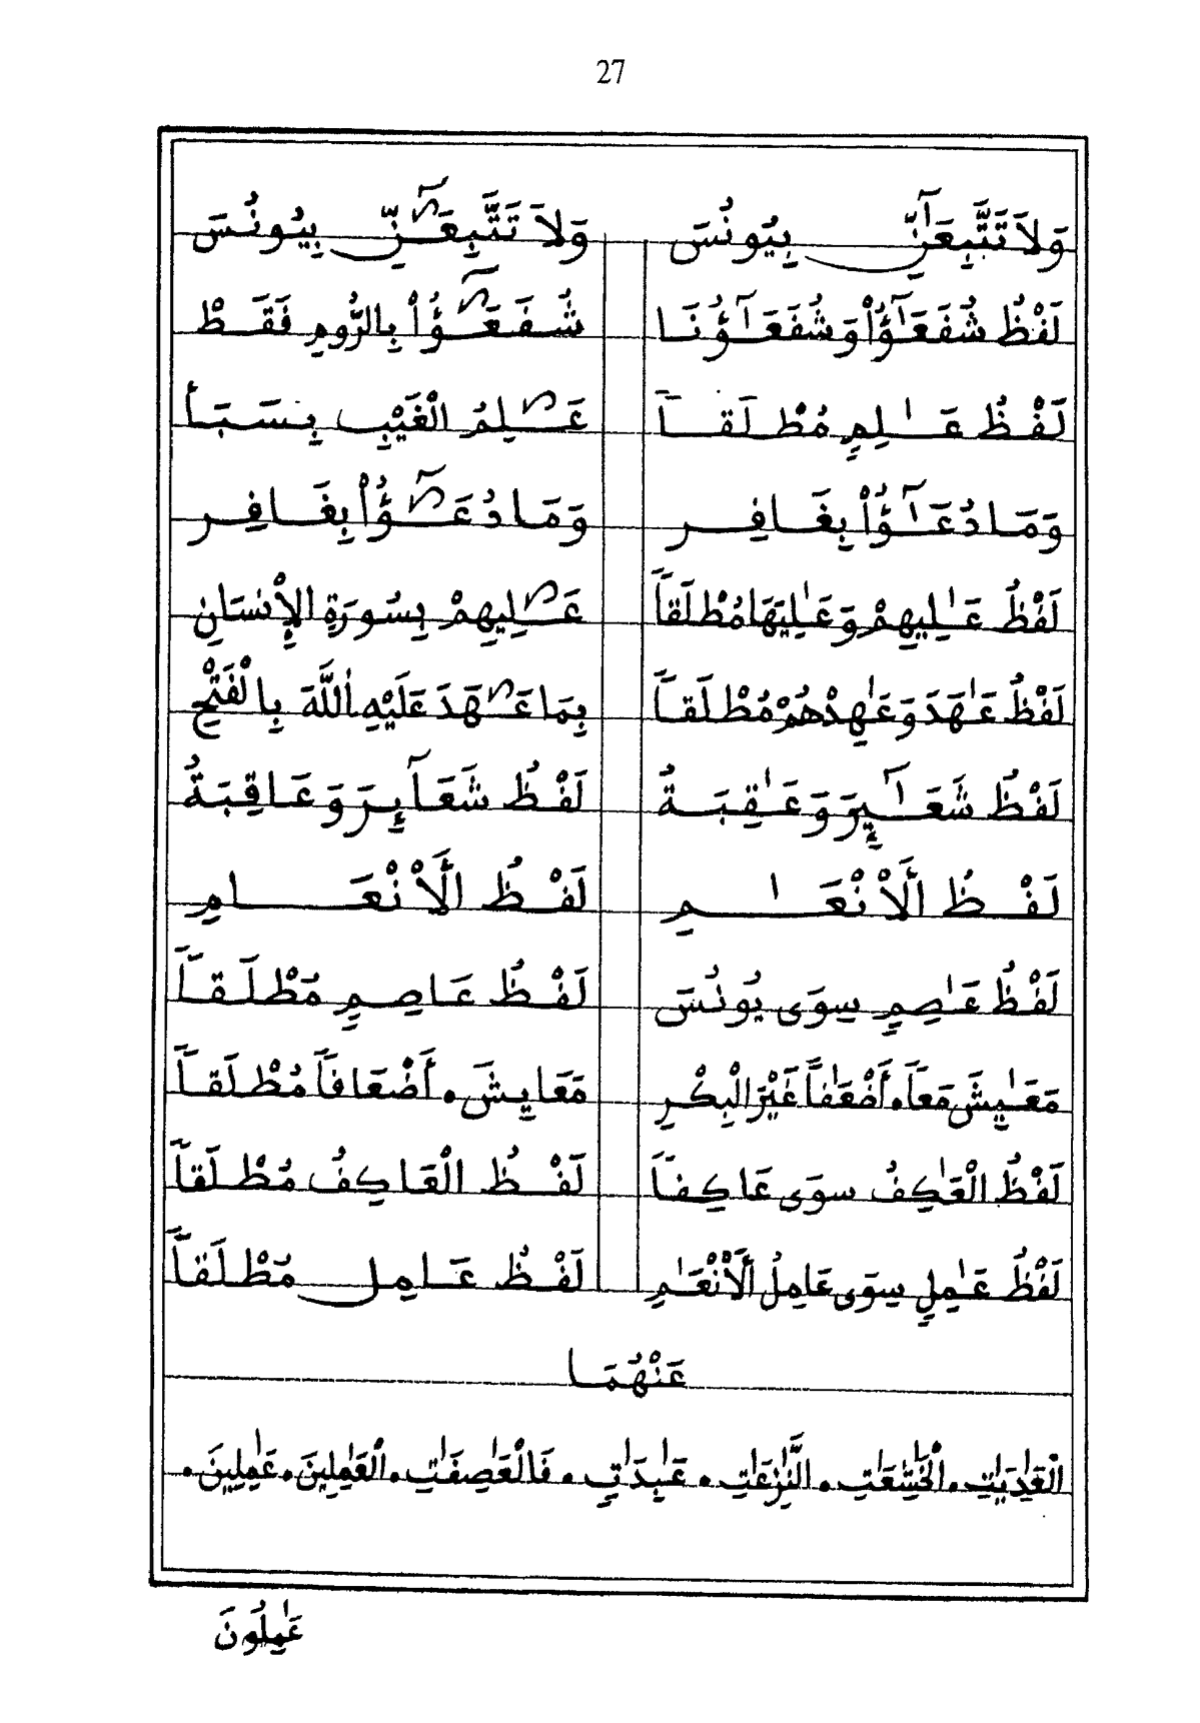 27
وَلاَ تَتَّبِعَٰٓنِّ بِيُونُسَ وَلاَ تَتَّبِعَٰٓنِّ بِيُونُسَ
لَفْظُ شُفَعَٰٓؤُاْ وَشُفَعَٰٓؤُنَا شُفَعَٰٓؤُاْ بِالرُّومِ فَقَطْ
لَفْظُ عَٰلِمِ مُطْلَقاً عَٰلِمُ الْغَيْبِ بِسَبَأ
وَمَا دُعَٰٓؤُاْ بِغَافِر وَمَا دُعَٰٓؤُاْ بِغَافِر
لَفْظُ عَٰلِيهِمْ وَعَٰلِيَهَا مُطْلَقاً عَٰلِيهِمْ بِسُورَةِ الإِنسَانِ
لَفْظُ عَٰهَدَ وَعَٰهِدْهُمْ مُطْلَقاً بِمَا عَٰهَدَ عَلَيْهِ اُللَّهَ بِالْفَتْحِ
لَفْظُ شَعَٰٓئِرَ وَعَٰقِبَةُ لَفْظُ شَعَآئِرَ وَعَاقِبَةُ
لَفْظُ اَلَانْعَٰمِ لَفْظُ اَلَانْعَامِ
لَفْظُ عَٰصِمٍ سِوَى يُونُسَ لَفْظُ عَاصِمٍ مُطْلَقاً
مَعَٰيِشَ مَعاً. أَضْعَٰفاً غَيْرَ الْبِكْرِ مَعَايِشَ. أَضْعَافاً مُطْلَقاً
لَفْظُ الْعَٰكِفُ سِوَى عَاكِفاً لَفْظُ الْعَاكِفُ مُطْلَقاً
لَفْظُ عَٰمِلٍ سِوَى عَامِلُ اَلَانْعَٰمِ لَفْظُ عَامِل مُطْلَقاً
عَنْهُمَا
الْعَٰدِيَٰتِ. الْخَٰشِعَٰتِ. النَّٰزِعَٰتِ. عَٰبِدَٰتٍ. فَالْعَٰصِفَٰتِ. الْعَٰمِلِينَ. عَٰمِلِينَ.
عَٰمِلُونَ